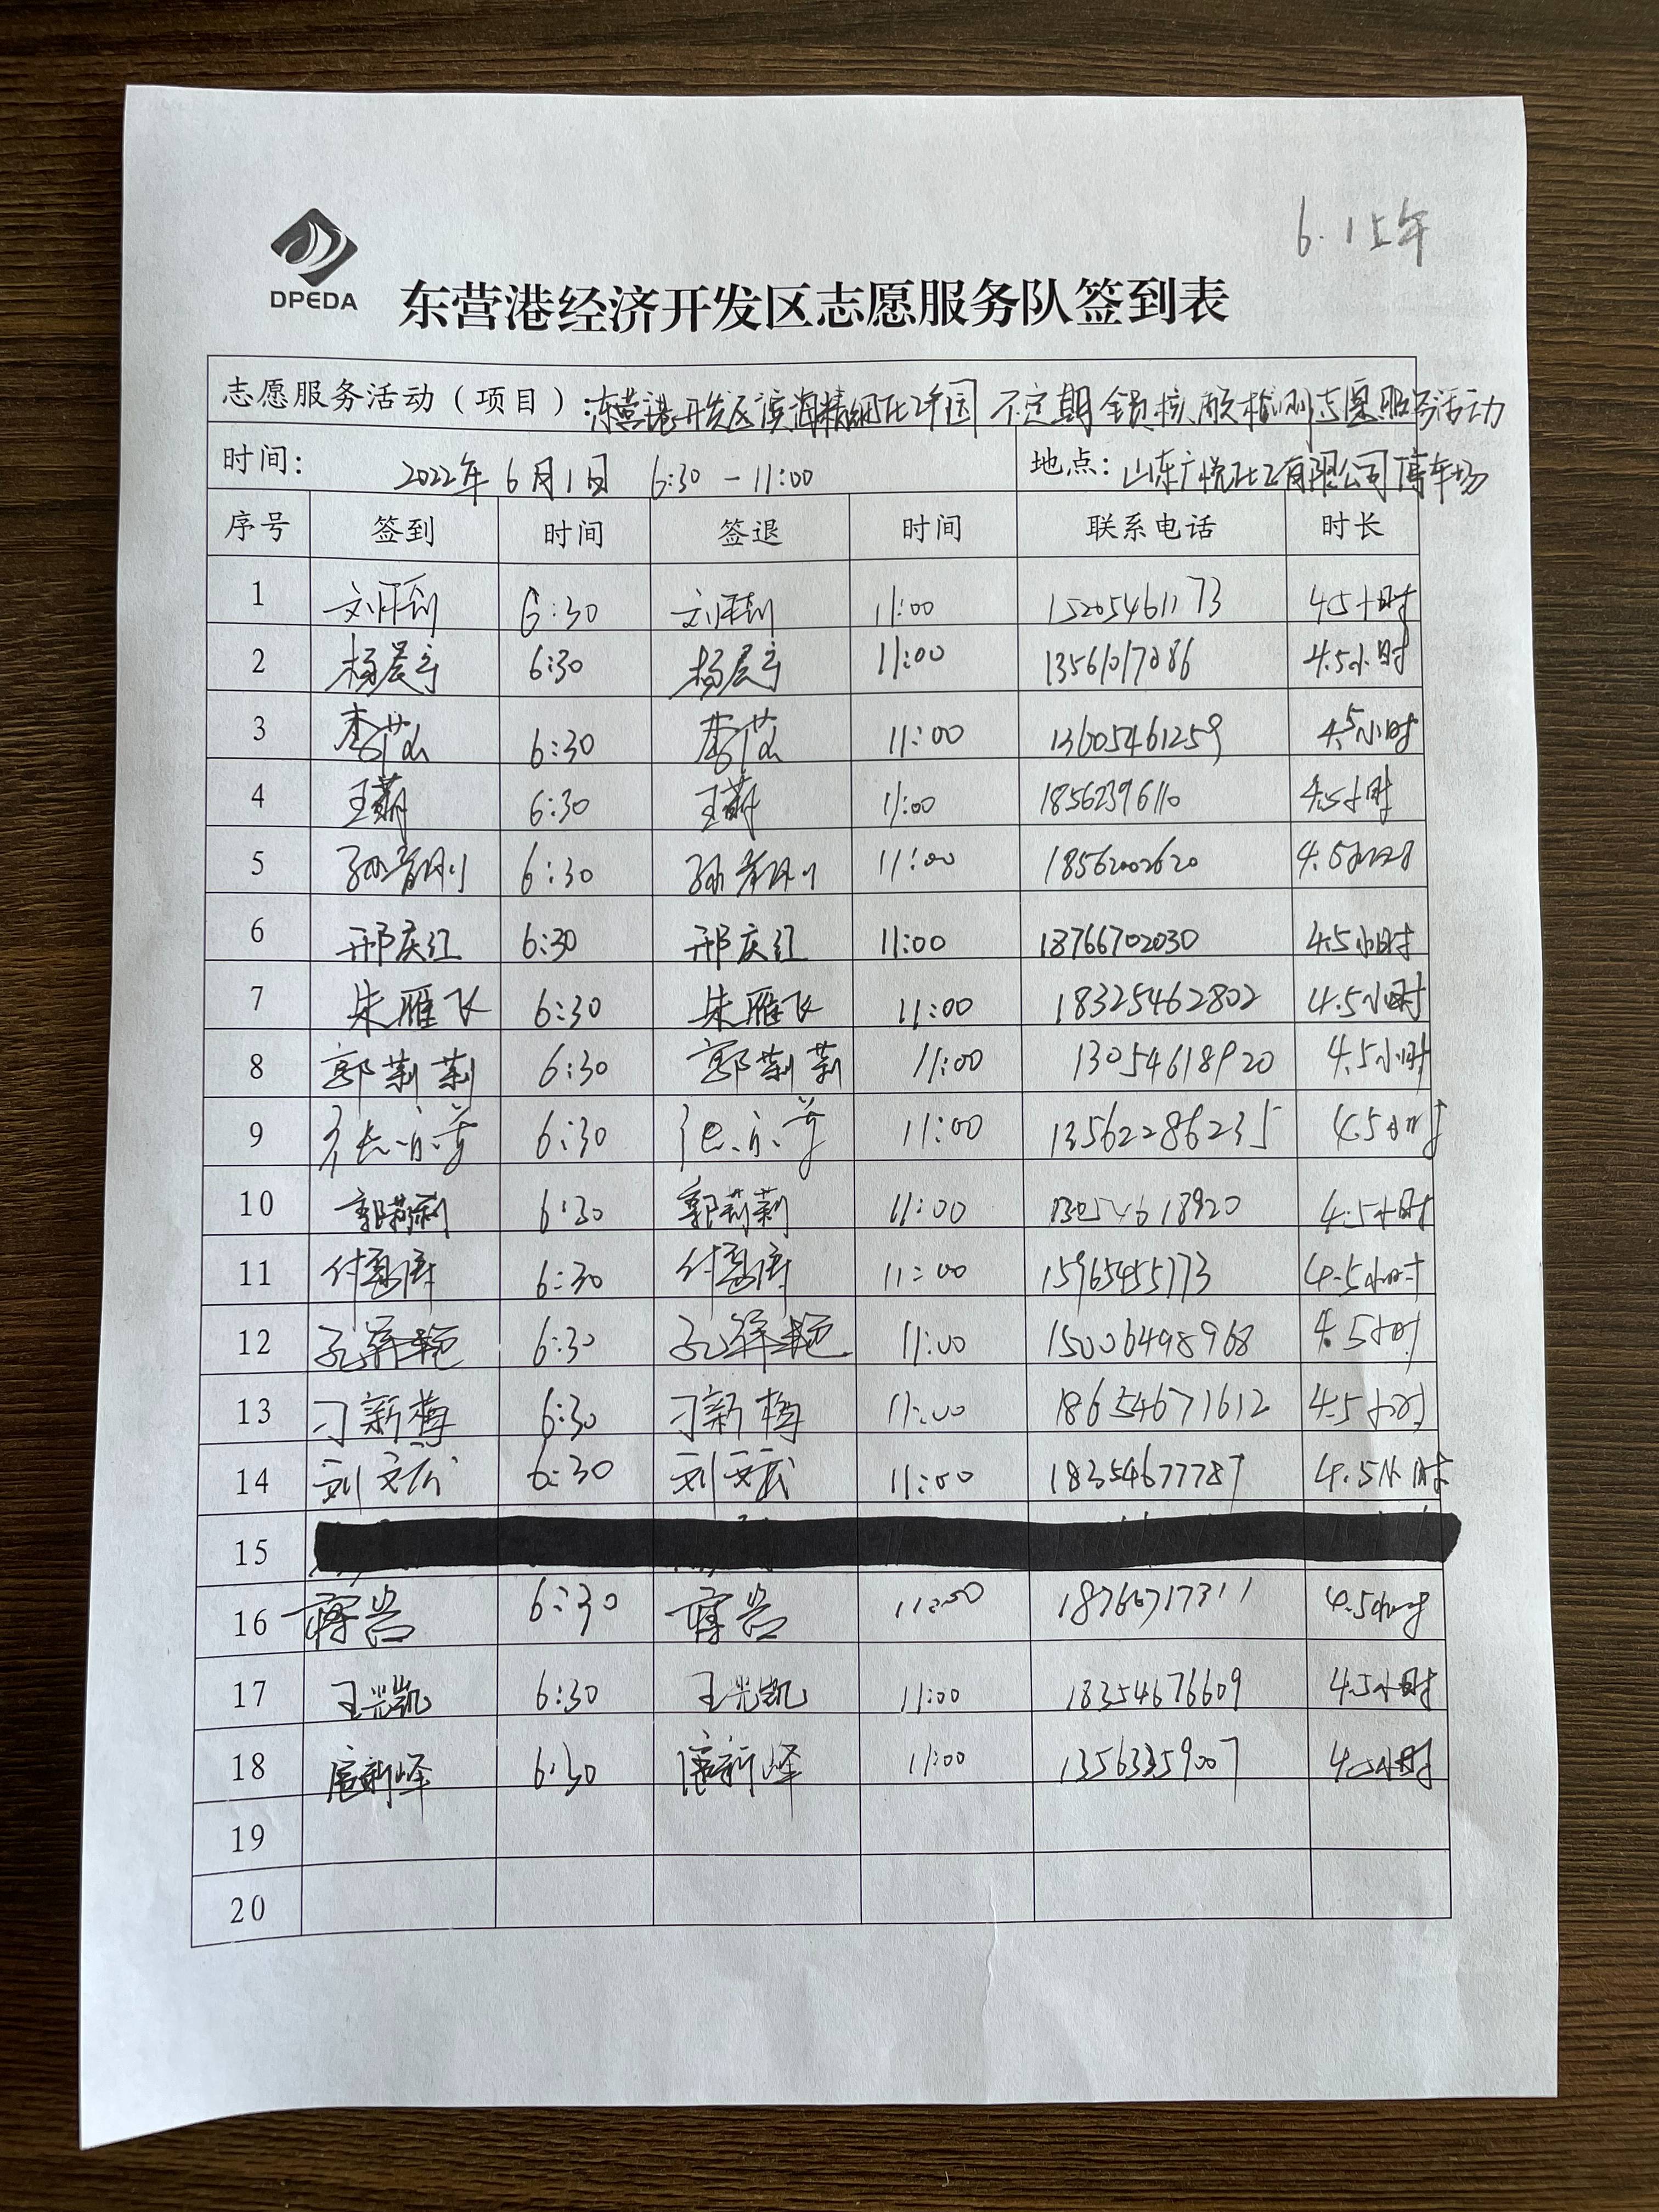 6.1上午
DPEDA
东营港经济开发区志愿服务队签到表
志愿服务活动（项目）：东营港开发区滨海精细化工园 不定期全员核酸检测志愿服务活动
时间： 2022年6月1日 6:30-11:00 地点：山东广悦化工有限公司停车场
序号 签到 时间 签退 时间 联系电话 时长
1 6:30 11:00 15205461173 4.5小时
2 杨晨宇 6:30 杨晨宇 11:00 4.5小时
3 6:30 11:00 13605461259 4.5小时
4 王萌 6:30 王萌 11:00 4.5小时
5 6:30 11:00 18562002620 4.5小时
6 邢庆红 6:30 邢庆红 11:00 18766702030 4.5小时
7 朱雁飞 6:30 朱雁飞 11:00 18325462802 4.5小时
8 郭莉莉 6:30 郭莉莉 11:00 13054618920 4.5小时
9 6:30 11:00 13562286235 4.5小时
10 郭莉莉 6:30 郭莉莉 11:00 13054618920 4.5小时
11 6:30 11:00 15965455773 4.5小时
12 孔祥艳 6:30 孔祥艳 11:00 15006498968 4.5小时
13 刁新梅 6:30 刁新梅 11:00 18654671612 4.5小时
14 6:30 11:00 18354677787 4.5小时
15
16 6:30 11:00 18766717311 4.5小时
17 王光凯 6:30 王光凯 11:00 18354676609 4.5小时
18 6:30 11:00 13563359007 4.5小时
19
20